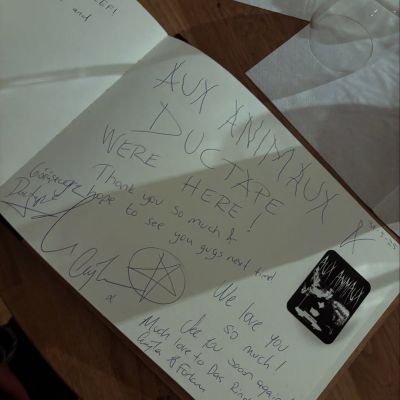 and
AUX ANIMAUX &
DUCTAPE
WERE HERE!
Thank you so much &
hope to see you guys next time!
Ductape
x
We love you
so much!
See you soon again!
Much love to Das
AUX ANIMAUX